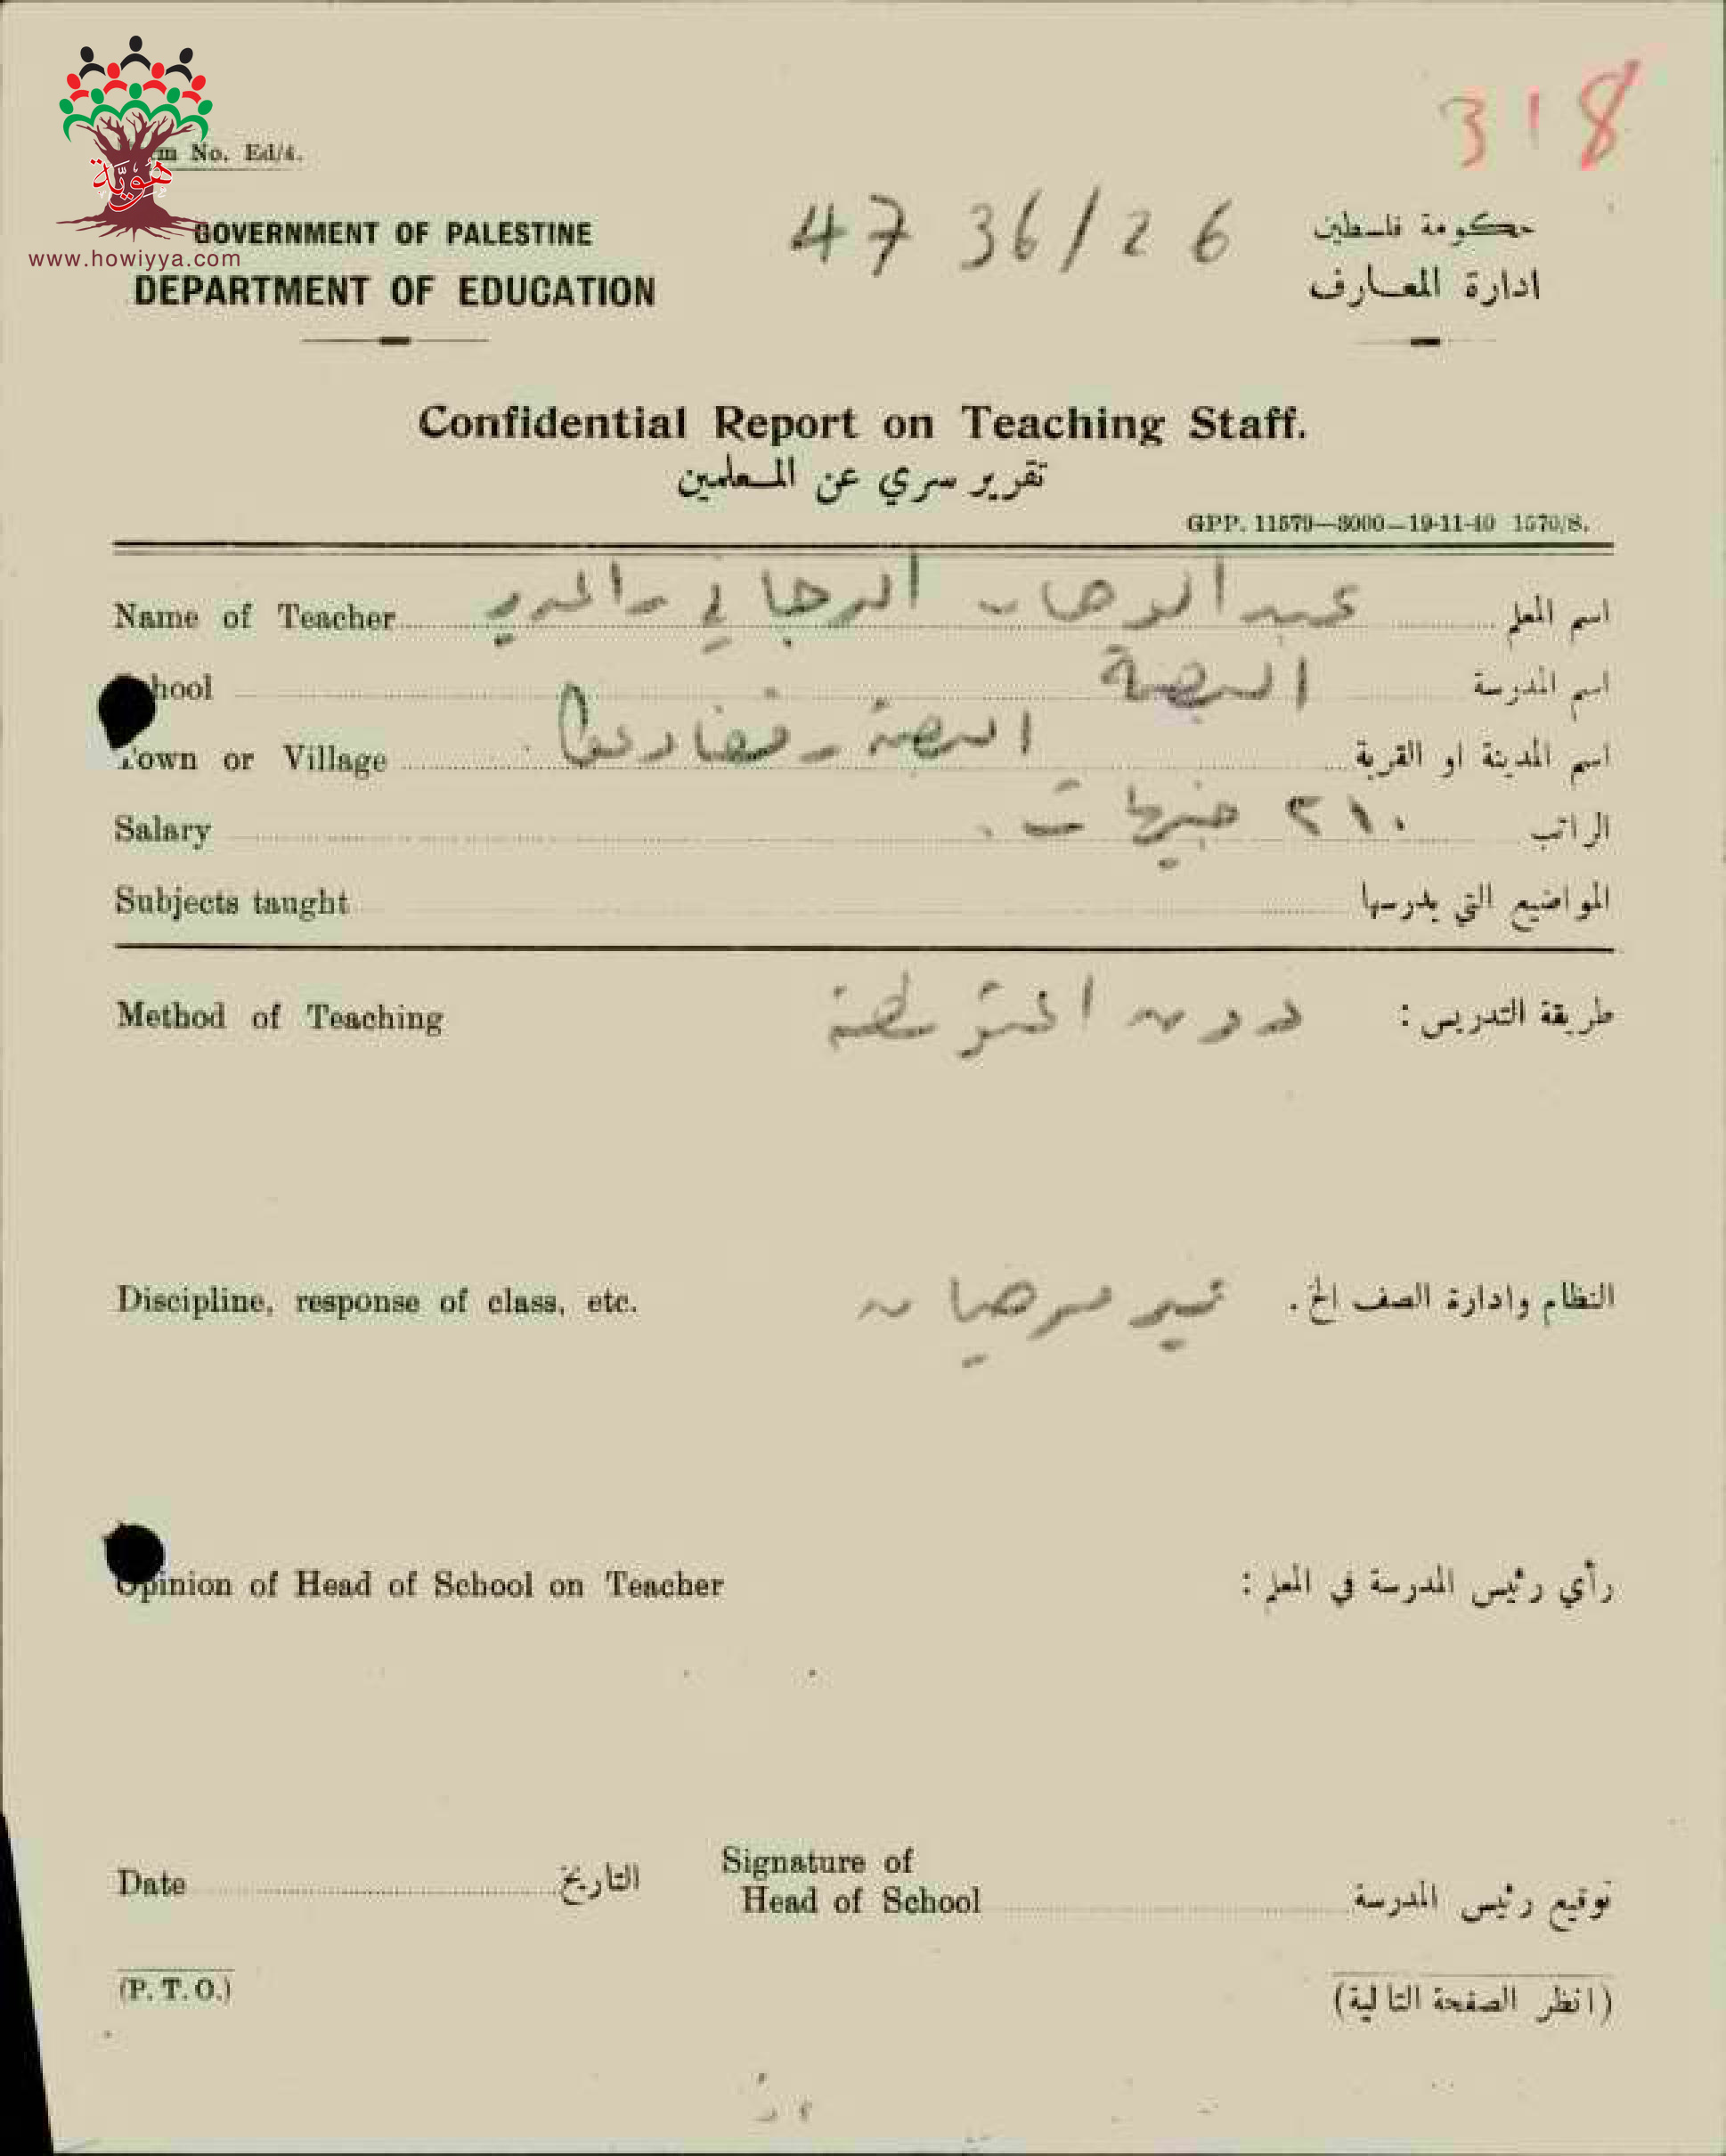 318
هوية
www.howiyya.com
No. Ed/4.
GOVERNMENT OF PALESTINE
حكومة فلسطين
4736/26
DEPARTMENT OF EDUCATION
ادارة المعارف
Confidential Report on Teaching Staff.
تقرير سري عن المعلمين
GPP. 11579—3000—19-11-40 1570/8.
Name of Teacher عبد الوهاب الرجاني اسم المعلم
School البصة اسم المدرسة
Town or Village البصة - قضاء عكا اسم المدينة او القرية
Salary ٢١٠ جنيهات. الراتب
Subjects taught المواضيع التي يدرسها
Method of Teaching دون المتوسطة طريقة التدريس :
Discipline, response of class, etc. غير مرضيان النظام وادارة الصف الخ.
Opinion of Head of School on Teacher رأي رئيس المدرسة في المعلم :
Date التاريخ
Signature of Head of School توقيع رئيس المدرسة
(P. T. O.)
(انظر الصفحة التالية)